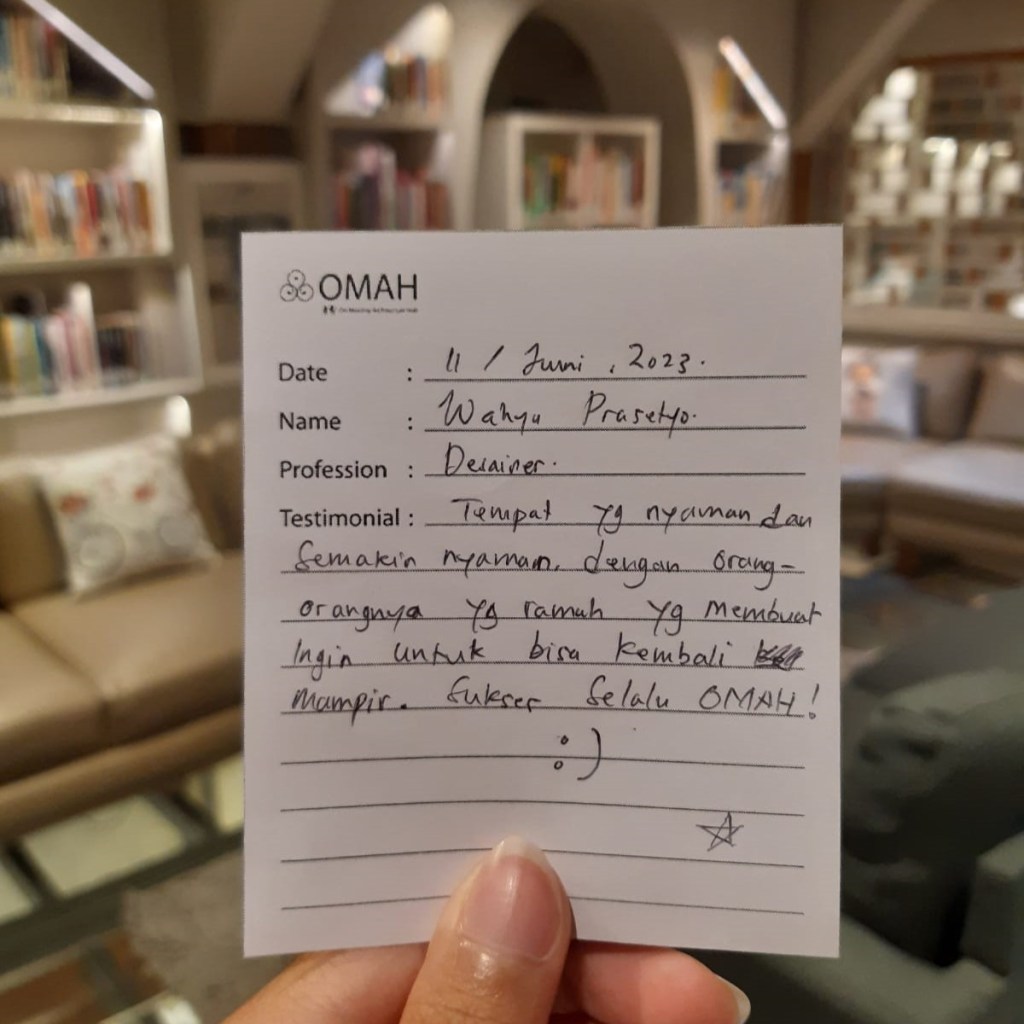 OMAH
Date : 11 / Juni , 2023.
Name : Wahyu Prasetyo.
Profession : Desainer.
Testimonial : Tempat yg nyaman dan
Semakin nyaman, dengan orang-
orangnya yg ramah yg Membuat
Ingin untuk bisa Kembali
Mampir. Sukses Selalu OMAH!
:)